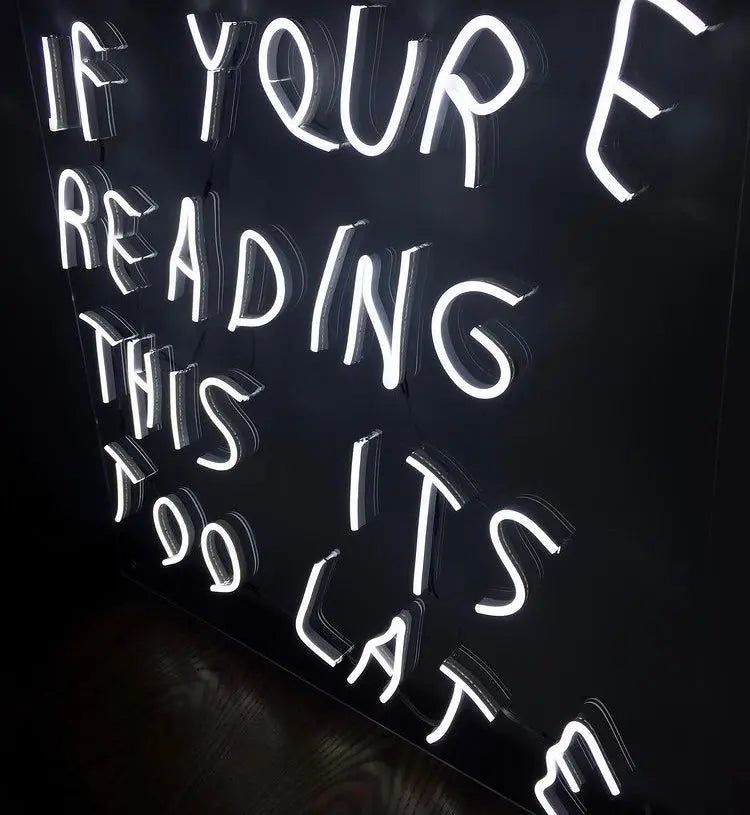 IF YOUR E
READING
THIS ITS
TOO LATE